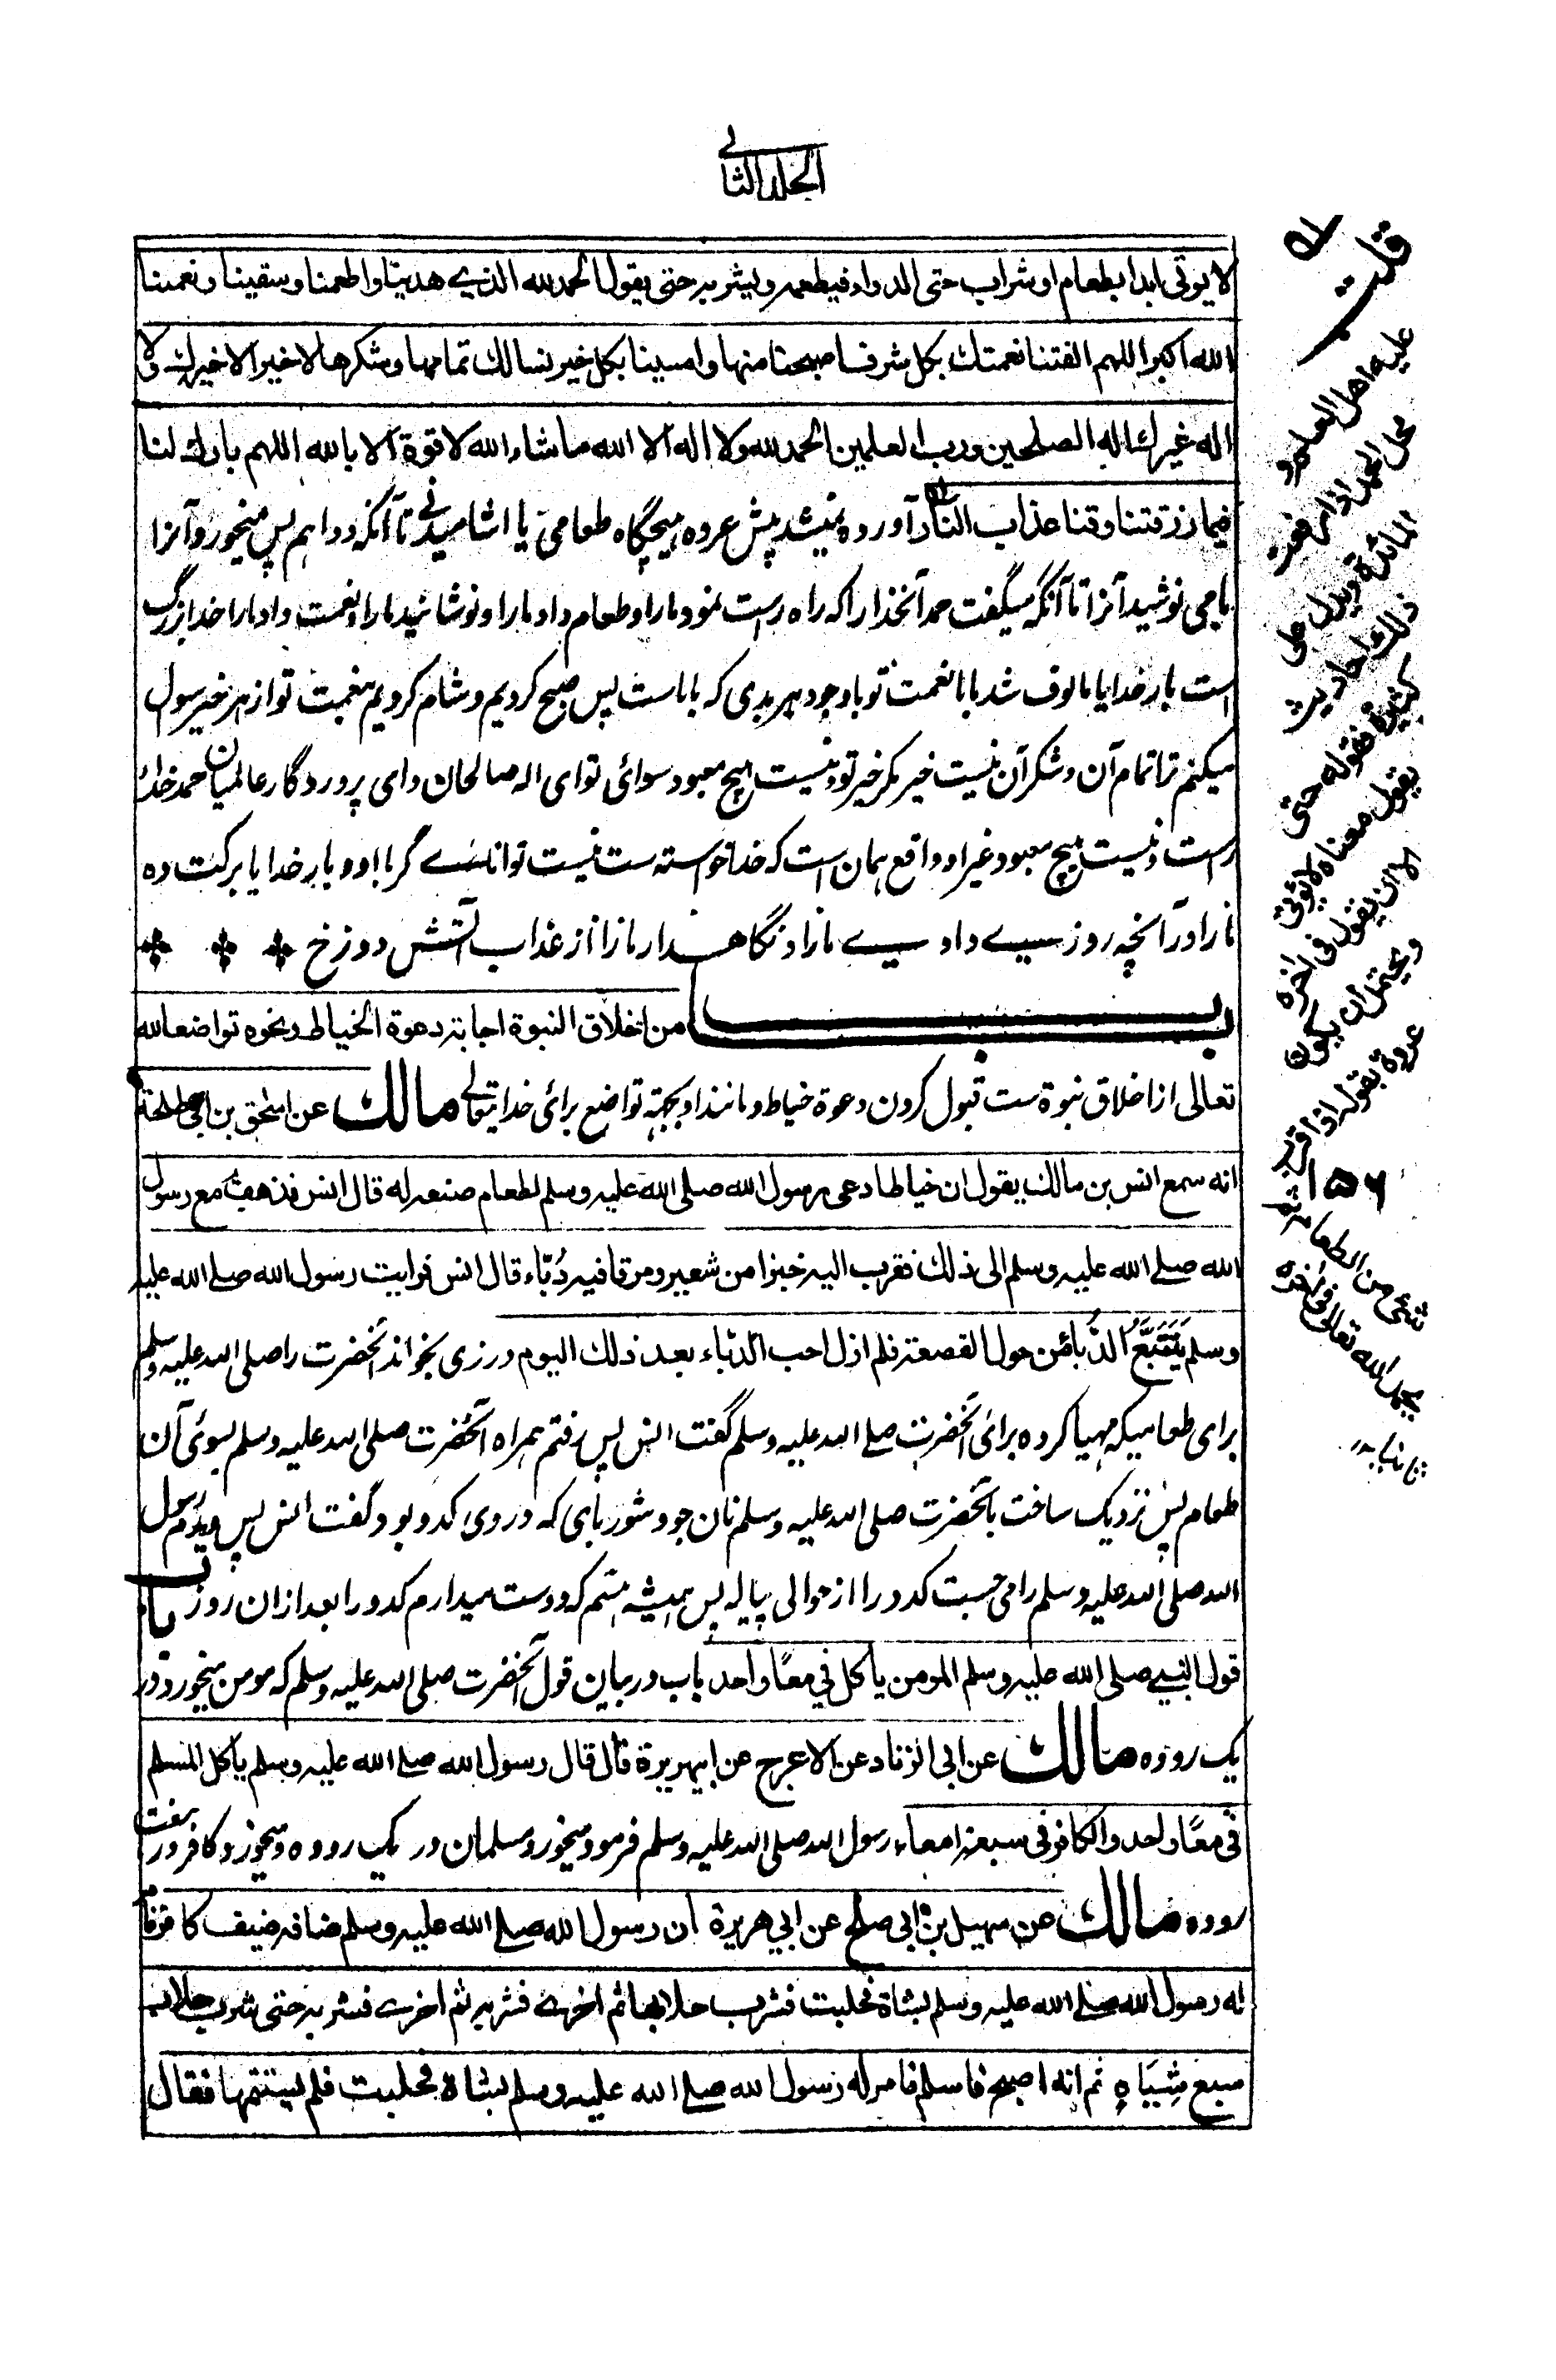 الجلد الثانی
لا يوتى ابدا بطعام او شراب حتى الدواء فيطعمه ويشربه حتى يقول الحمد لله الذي هدينا واطعمنا وسقينا ونعمنا
الله اكبر اللهم الفتنا نعمتك بكل شر فاصبحنا منها وامسينا بكل خير نسالك تمامها وشكرها لا خير الا خيرك ولا
اله غيرك اله الصلحين ورب العلمين الحمد لله ولا اله الا الله ما شاء الله لا قوة الا بالله اللهم بارك لنا
فيما رزقتنا وقنا عذاب النار آورده نمیشد پیش عروه هیچگاه طعامی یا اشامیدنی تا آنکه دوا هم پس میخورد آنرا
یا می نوشید آنرا تا آنکه میگفت حمد آنخدا را که راه راست نمود مارا و طعام داد مارا و نوشانید مارا و نعمت داد مارا خدا بزرگ
است بار خدایا مالوف شد با ما نعمت تو باوجود هر بدی که با ماست پس صبح کردیم و شام کردیم بنعمت تو از هر خیر سول
میکنم ترا تمام آن و شکر آن نیست خیر مگر خیر تو و نیست هیچ معبود سوائی تو ای اله صالحان و ای پروردگار عالمیان حمد خدا
راست و نیست هیچ معبود غیر او و واقع همان است که خدا خواسته ست نیست توانائے مگر با او بار خدایا برکت ده
مارا در آنچه روزیے دادیے مارا و نگاهدار مارا از عذاب آتش دوزخ
باب من اخلاق النبوة اجابته دعوة الخياط ونحوه تواضعا لله
تعالى از اخلاق نبوة ست قبول کردن دعوة خیاط و مانند او بجهة تواضع برای خدا یتعالی مالك عن اسحق بن ابی طلحة
انه سمع انس بن مالك يقول ان خياطا دعى رسول الله صلى الله عليه وسلم لطعام صنعه له قال انس فذهبت مع رسول
الله صلے الله عليه وسلم الى ذلك فقرب اليه خبزا من شعير ومرقا فيه دُبّاء قال انس فرايت رسول الله صلے الله عليه
وسلم يَتَتَبَّعُ الدُّباء من حول القصعة فلم ازل احب الدباء بعد ذلك اليوم درزی بخواند آنحضرت را صلی الله علیه وسلم
برای طعامیکه مهیا کرده برای آنحضرت صلے الله علیه وسلم گفت انس پس رفتم همراه آنحضرت صلی الله علیه وسلم بسوئی آن
طعام پس نزدیک ساخت بآنحضرت صلی الله علیه وسلم نان جو و شوربای که در وی کدو بود گفت انس پس دیدم رسول
الله صلی الله علیه وسلم را می جست کدو را از حوالی پیاله پس همیشه هستم که دوست میدارم کدو را بعد ازان روز باب
قول النبي صلى الله عليه وسلم المومن ياكل في معًا واحد باب در بیان قول آنحضرت صلی الله علیه وسلم که مومن میخورد در
یک روده مالك عن ابى الزناد عن الاعرج عن ابيهريرة قال قال رسول الله صلے الله عليه وسلم ياكل المسلم
في معًا واحد والكافر في سبعة امعاء رسول الله صلی الله علیه وسلم فرمود میخورد مسلمان در یک روده و میخورد کافر در هفت
روده مالك عن سهيل بن ابي صلح عن ابي هريرة ان رسول الله صلے الله عليه وسلم ضافه ضيف كافر فامر
له رسول الله صلے الله عليه وسلم بشاة فحلبت فشرب حلابها ثم اخرے فشربه ثم اخرے فشربه حتى شرب حلاب
سبع شِيَاهٍ ثم انه اصبح فاسلم فامر له رسول الله صلے الله عليه وسلم بشاة فحلبت فلم يستتمها فقال
قلت
عليه اهل العلم و
محل الحمد اذا فرغت
المائدة ويدل على
ذلك احاديث
كثيرة فقوله حتى
يقول معناه لا يؤتى
الا ان يقول في اخره
ويحتمل ان يكون
عروة بقوله اذا قرب
شئ من الطعام ثم
يحمد الله تعالى في اخره